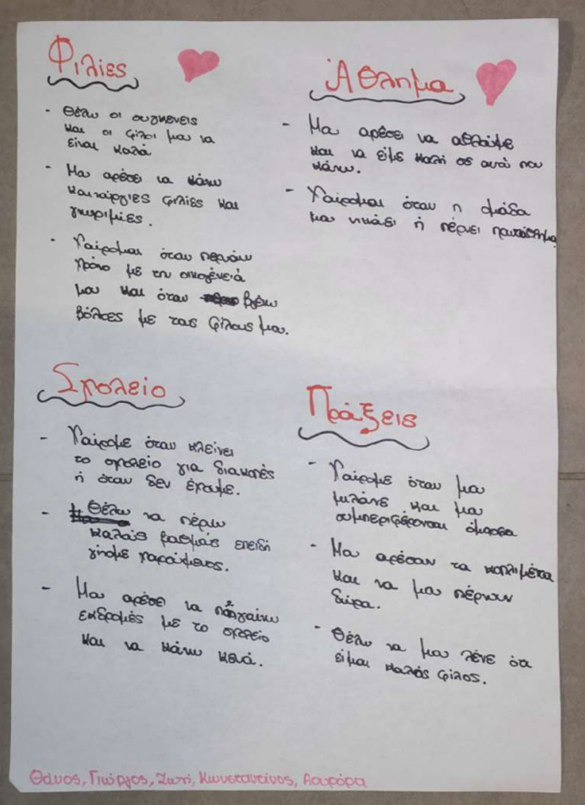 Φιλίες
- Θέλω οι συγκενείς
και οι φίλοι μου να
είναι καλά
- Μου αρέσει να κάνω
καινούργιες φιλίες και
γνωριμίες.
- Χαίρομαι όταν περνάω
χρόνο με την οικογένειά
μου και όταν βγένω
βόλτες με τους φίλους μου.
Άθλημα
- Μου αρέσει να αθλούμε
και να είμε καλή σε αυτό που
κάνω.
- Χαίρομαι όταν η ομάδα
μου νικάει ή πέρνει πρωτάθλημα
Σχολείο
- Χαίρομε όταν κλείνει
το σχολείο για διακοπές
ή όταν δεν έχουμε.
- Θέλω να πέρνω
καλούς βαθμούς επειδή
γίνομε χαρούμενος.
- Μου αρέσει να πηγαίνω
εκδρομές με το σχολείο
και να κάνω κενά.
Πράξεις
- Χαίρομε όταν μου
μιλάνε και μου
συμπεριφέρονται όμορφα
- Μου αρέσουν τα κοπλιμέντα
και να μου πέρνουν
δώρα.
- Θέλω να μου λένε ότι
είμαι καλός φίλος.
Θάνος, Γιώργος, Ζωή, Κωνσταντίνος, Αουρόρα